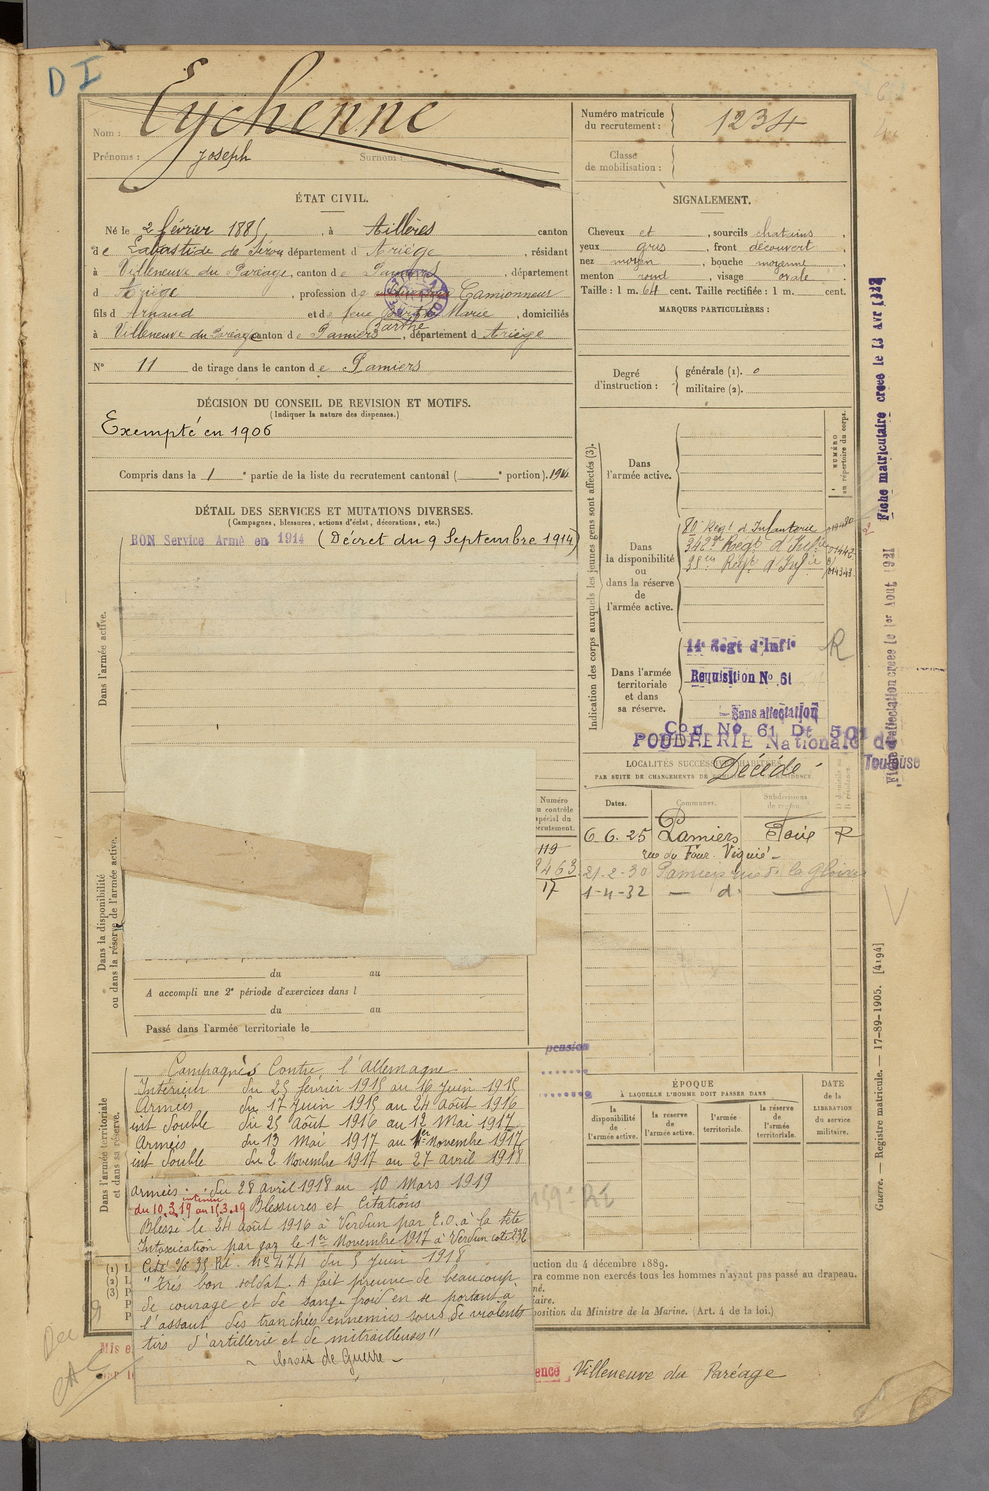 D I
Nom : Eychenne
Prénoms : Joseph Surnom :
Numéro matricule du recrutement : 1234
Classe de mobilisation :
ÉTAT CIVIL.
Né le 2 février 1885, à Aillères canton
de Labastide de Sérou département d Ariège, résidant
à Villeneuve du Paréage, canton de Pamiers, département
d Ariège, profession de Camionneur
fils d Arnaud et de feue Marie, domiciliés
Barthe
à Villeneuve du Paréage canton de Pamiers, département d Ariège
N° 11 de tirage dans le canton de Pamiers
SIGNALEMENT.
Cheveux et, sourcils chatains,
yeux gris, front découvert
nez moyen, bouche moyenne,
menton rond, visage ovale.
Taille : 1 m. 64 cent. Taille rectifiée : 1 m. cent.
MARQUES PARTICULIÈRES :
Degré d'instruction : générale (1). 0
militaire (2).
DÉCISION DU CONSEIL DE REVISION ET MOTIFS.
(Indiquer la nature des dispenses.)
Exempté en 1906
Compris dans la 1 e partie de la liste du recrutement cantonal ( e portion). 1914
DÉTAIL DES SERVICES ET MUTATIONS DIVERSES.
(Campagnes, blessures, actions d'éclat, décorations, etc.)
BON Service Armé en 1914 (Décret du 9 Septembre 1914)
Dans l'armée active.
Dans la disponibilité ou dans la réserve de l'armée active.
Indication des corps auxquels les jeunes gens sont affectés (3).
NUMÉRO au répertoire du corps.
Dans l'armée active.
Dans la disponibilité ou dans la réserve de l'armée active.
80 Regt d'Infanterie
342e Regt d'Infie
35eme Regt d'Infie
Dans l'armée territoriale et dans sa réserve.
14e Regt d'Infie R
Requisition No 61
Sans affectation
Con No 61 Dt 501
POUDRERIE Nationale de
Toulouse
Fiche matriculaire créée le 13 Avr
Fiche d'affectation créée le 1er Aout 1931
LOCALITÉS SUCCESSIVES HABITÉES
PAR SUITE DE CHANGEMENTS DE DOMICILE OU DE RÉSIDENCE
Décédé
Dates. Communes. Subdivisions de région.
6. 6. 25 Pamiers Foix R
rue du Four Viguié
21-2-30 Pamiers rue de la Gloire
1-4-32 — d° —
Numéro au contrôle spécial du recrutement.
119
17
du au
A accompli une 2e période d'exercices dans l
du au
Passé dans l'armée territoriale le
pension
Dans l'armée territoriale et dans sa réserve.
Campagnes Contre l'Allemagne
Intérieur du 25 février 1915 au 16 juin 1915
Armées du 17 juin 1915 au 24 Août 1916
int double du 25 Août 1916 au 12 Mai 1917
Armées du 13 Mai 1917 au 1er Novembre 1917
int double du 2 Novembre 1917 au 27 avril 1918
armées : du 28 avril 1918 au 10 Mars 1919
intérieur
du 10.3.19 au 15.3.19 Blessures et Citations
Blessé le 24 août 1916 à Verdun par E.O. à la tête
Intoxication par gaz le 1er Novembre 1917 à Verdun cote
Cité o/o 35 RI. No 474 du 5 juin 1918
"Très bon soldat. A fait preuve de beaucoup
de courage et de sang-froid en se portant à
l'assaut des tranchées ennemies sous de violents
tirs d'artillerie et de mitrailleuses"
- Croix de Guerre -
ÉPOQUE
À LAQUELLE L'HOMME DOIT PASSER DANS
la disponibilité de l'armée active.
la réserve de l'armée active.
l'armée territoriale.
la réserve de l'armée territoriale.
DATE de la LIBÉRATION du service militaire.
uction du 4 décembre 1889.
ra comme non exercés tous les hommes n'ayant pas passé au drapeau.
né.
aire.
position du Ministre de la Marine. (Art. 4 de la loi.)
Mis e
ence Villeneuve du Paréage
Guerre. — Registre matricule. — 17-89-1905. [4194]